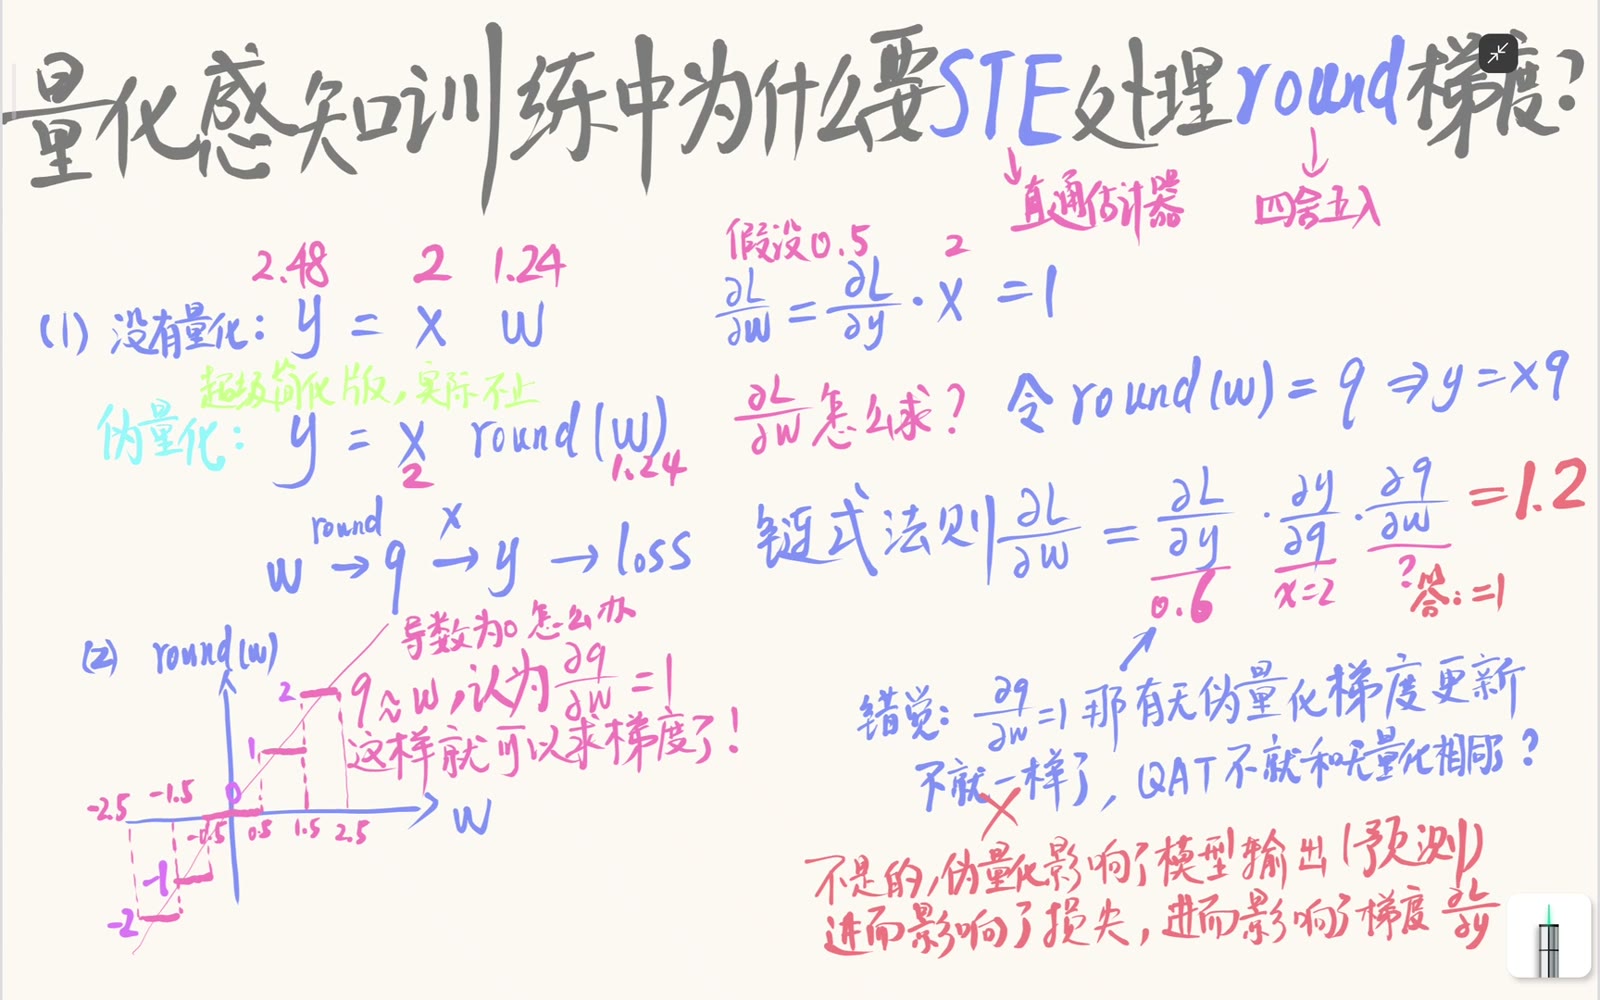 量化感知训练中为什么要STE处理round梯度?
直通估计器 四舍五入
2.48 2 1.24
(1) 没有量化: y = x w
假设0.5 2
∂L/∂w = ∂L/∂y · x = 1
超级简化版,实际不止
伪量化: y = x round(w)
2 1.24
∂L/∂w 怎么求? 令 round(w) = q ⇒ y = xq
w →(round) q →(x) y → loss
链式法则 ∂L/∂w = ∂L/∂y · ∂y/∂q · ∂q/∂w = 1.2
0.6 x=2 ? 答:=1
(2) round(w)
导数为0怎么办
q≈w,认为 ∂q/∂w = 1
这样就可以求梯度了!
2
1
0
-2.5 -1.5 -0.5 0.5 1.5 2.5 w
-1
-2
错觉: ∂q/∂w=1 那有无伪量化梯度更新
不就一样了, QAT不就和无量化相同?
不是的,伪量化影响了模型输出(预测)
进而影响了损失,进而影响了梯度 ∂L/∂y